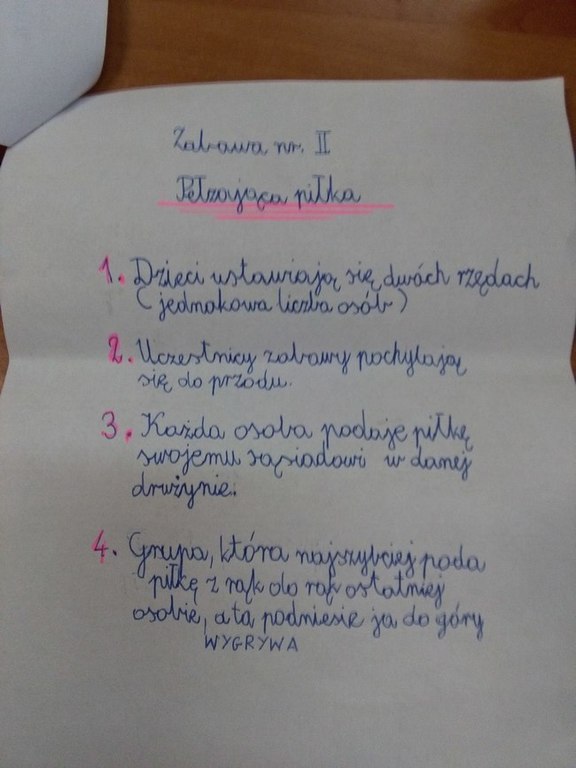 Zabawa nr. II
Pełzająca piłka
1. Dzieci ustawiają się dwóch rzędach
(jednakowa liczba osób)
2. Uczestnicy zabawy pochylają
się do przodu.
3. Każda osoba podaje piłkę
swojemu sąsiadowi w danej
drużynie.
4. Grupa, która najszybciej poda
piłkę z rąk do rąk ostatniej
osobie, a ta podniesie ja do góry
WYGRYWA